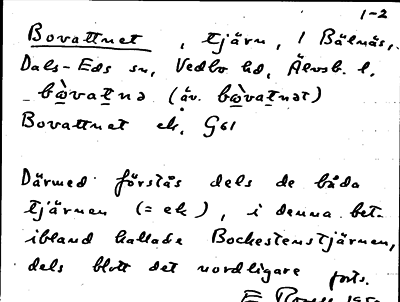 1-2
Bovattnet, tjärn, i Bälnäs,
Dals-Eds sn, Vedbo hd, Älvsb. l.
bòvatnə (äv. bòvatnət)
Bovattnet ek, G61
Därmed förstås dels de båda
tjärnen (= ek), i denna bet.
ibland kallade Bochestenstjärnen,
dels blott det nordligare forts.